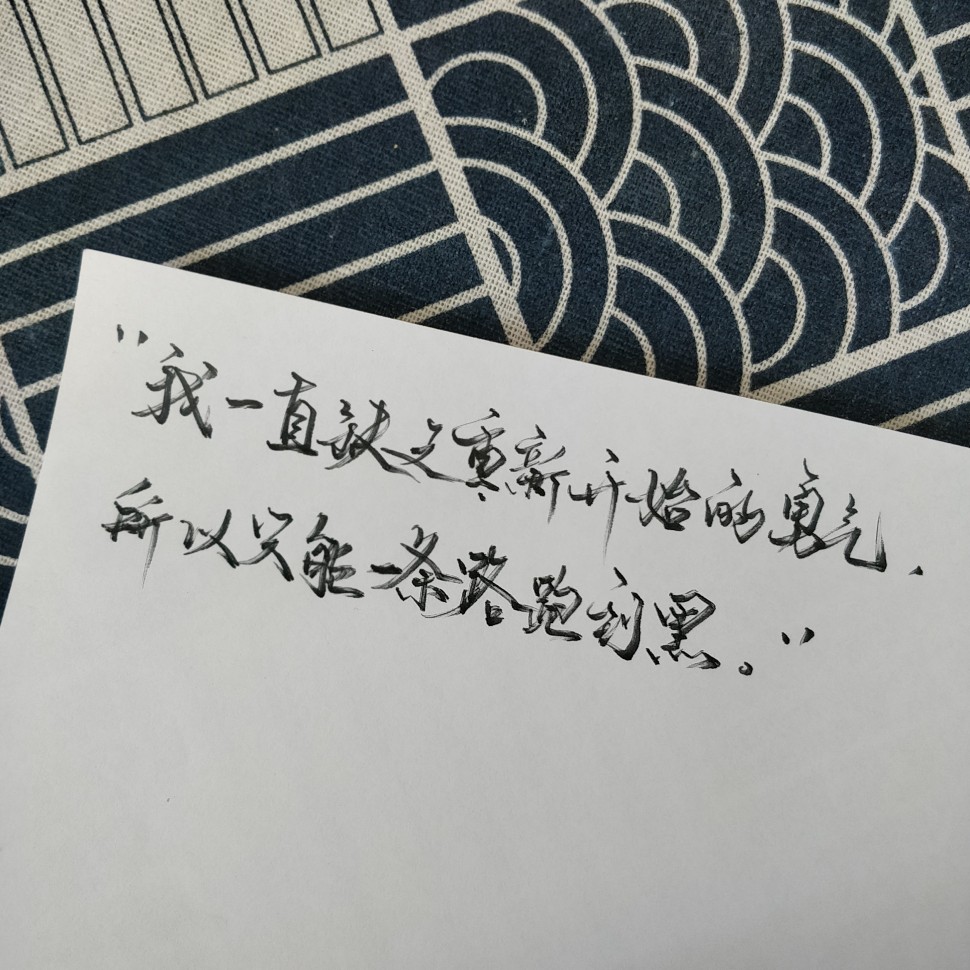 "我一直缺乏重新开始的勇气，
所以只能一条路跑到黑。"